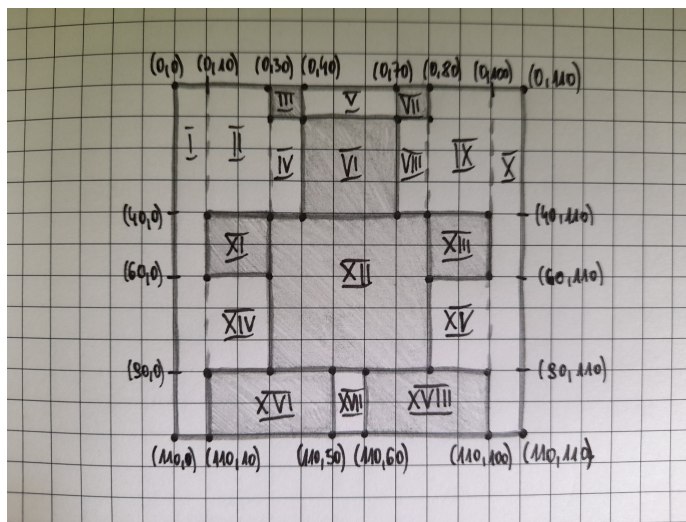 (0,0) (0,10) (0,30) (0,40) (0,70) (0,80) (0,100) (0,110)
III V VII
I II IV VI VIII IX X
(40,0) (40,110)
XI XII XIII
(60,0) (60,110)
XIV XV
(80,0) (80,110)
XVI XVII XVIII
(110,0) (110,10) (110,50) (110,60) (110,100) (110,110)